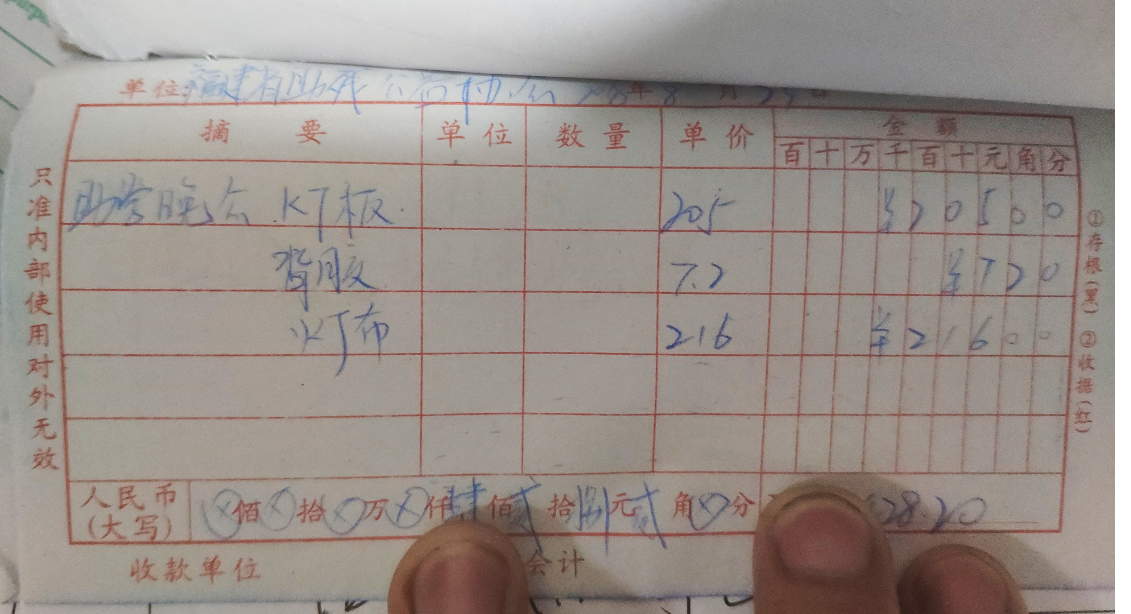 单位:福建省助残公益协会 年8月
摘要 单位 数量 单价 金额
百十万千百十元角分
助学晚会 KT板 205 ¥20500
背胶 7.2 ¥720
灯布 216 ¥21600
人民币(大写) ⊗佰⊗拾⊗万⊗仟肆佰贰拾捌元贰角⊗分 28.20
收款单位 会计
只准内部使用对外无效
①存根(黑) ②收据(红)